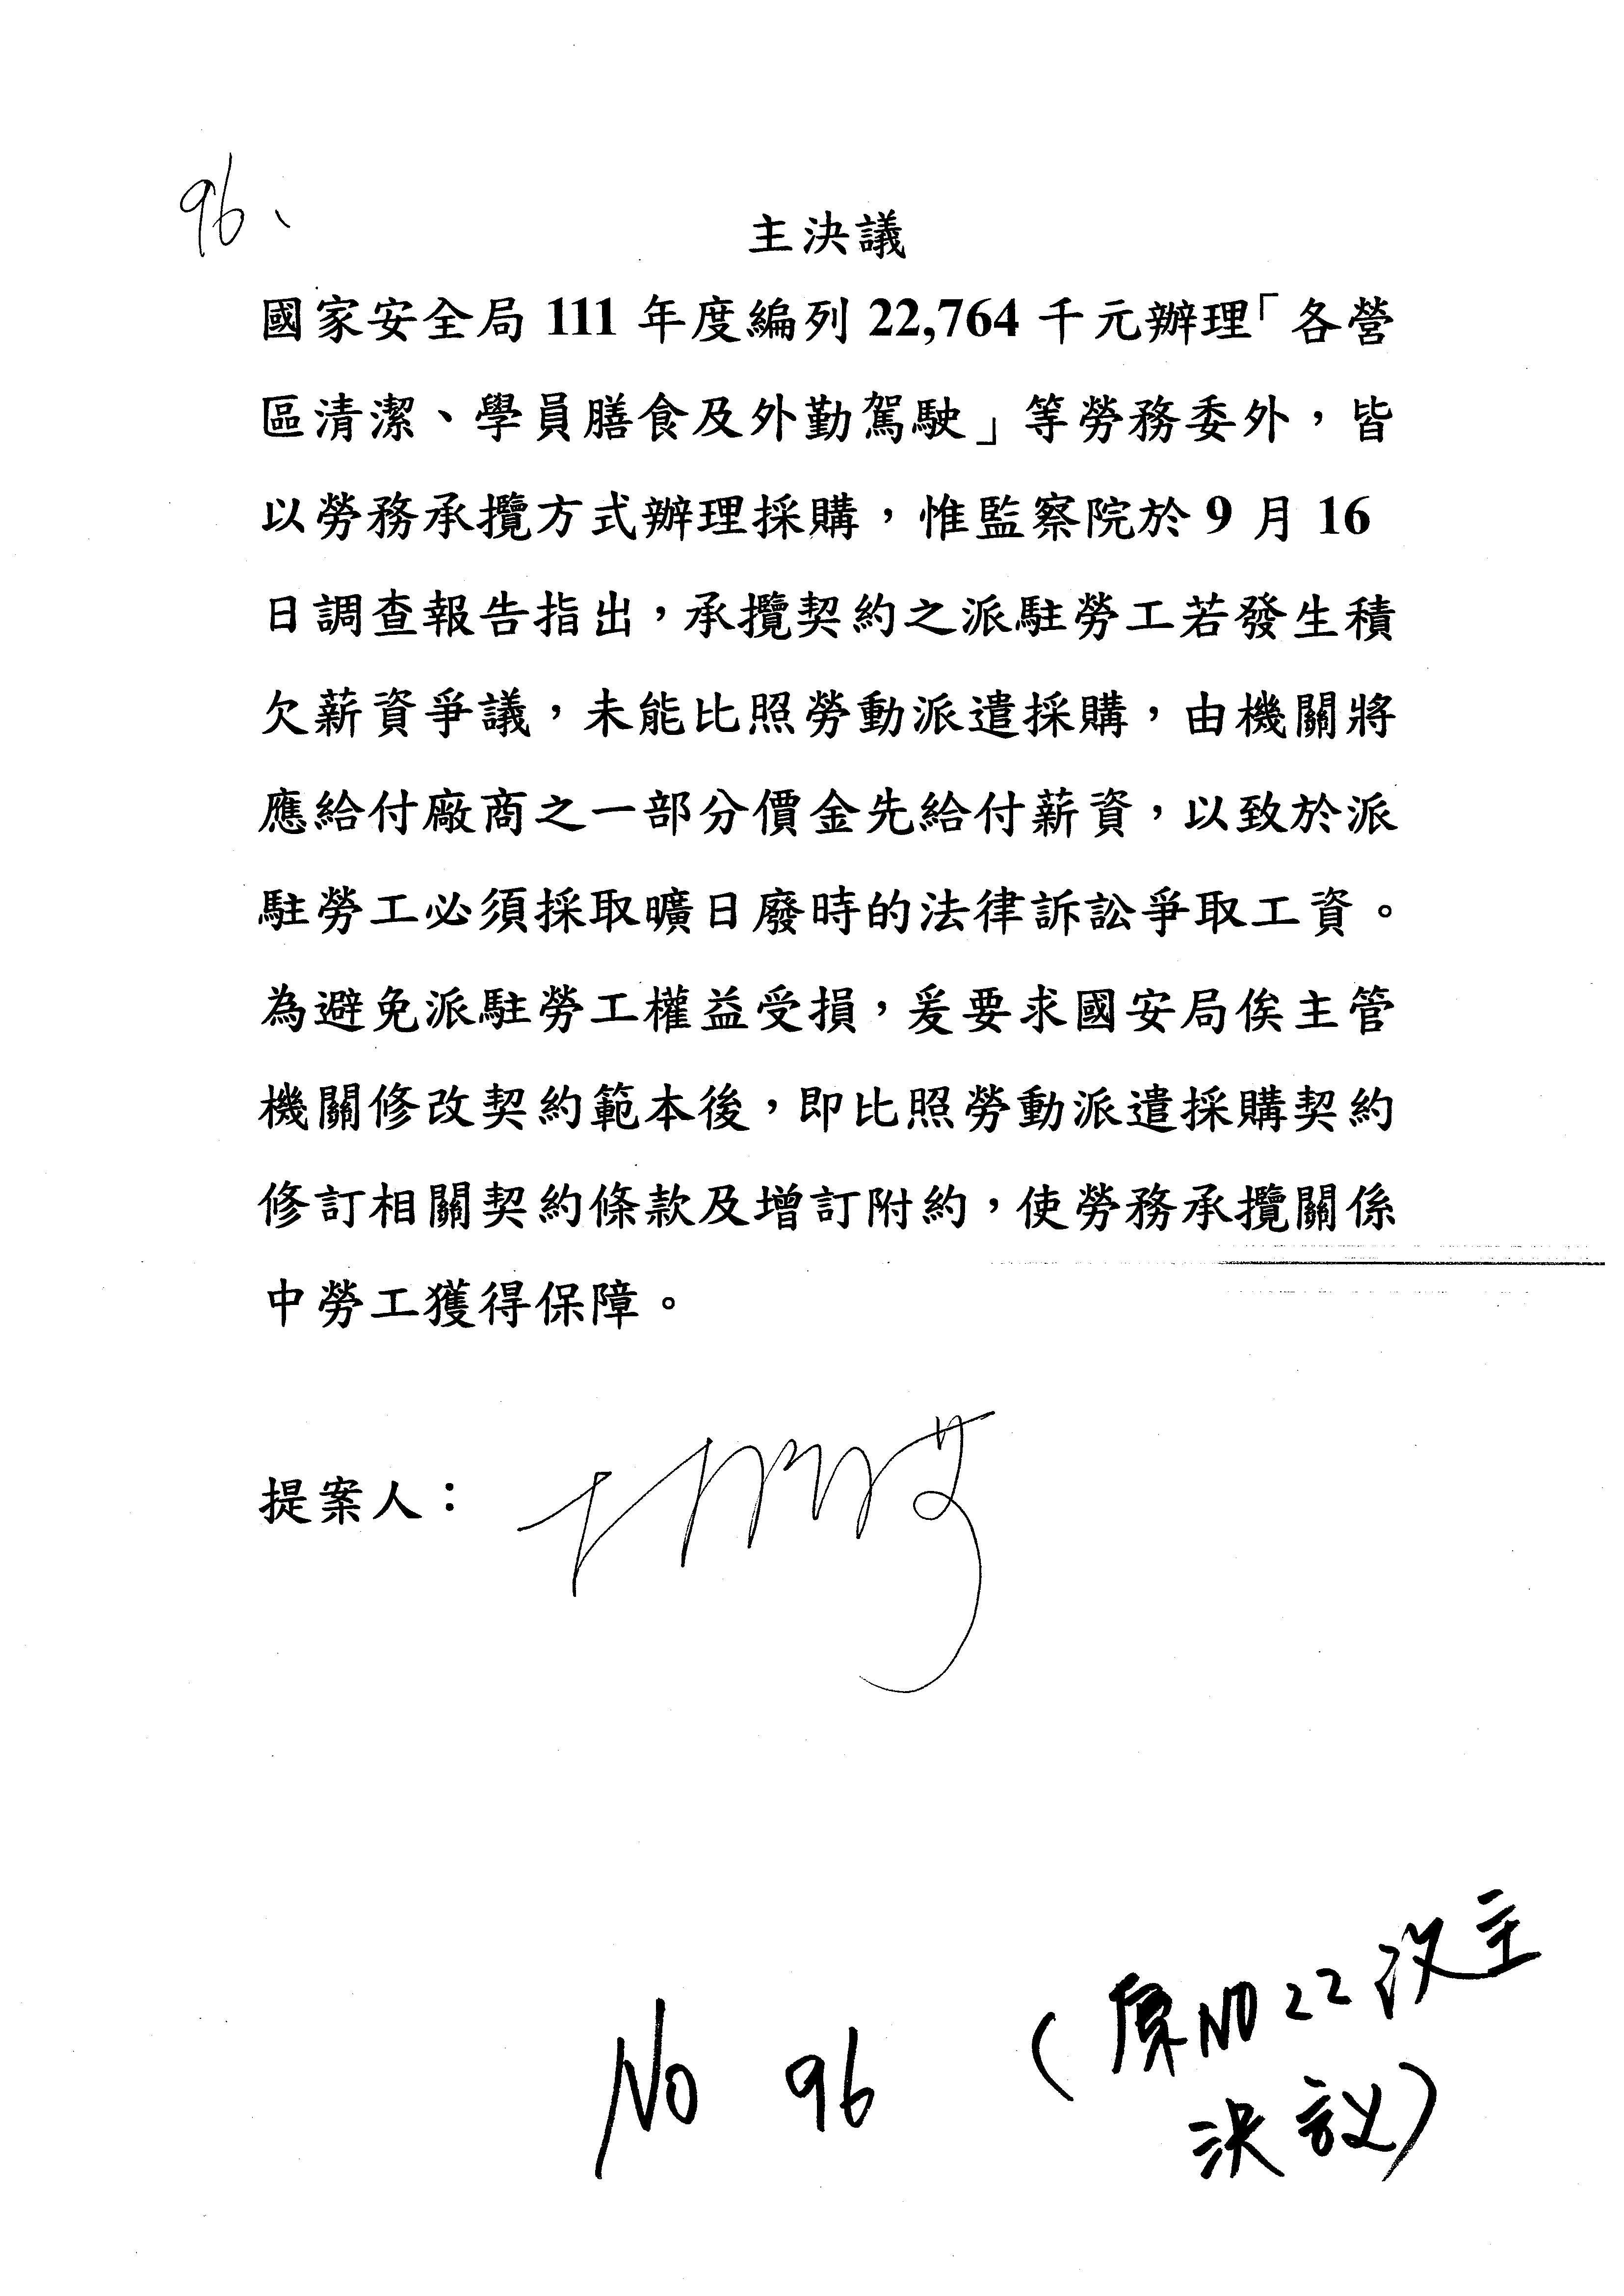 96、
主決議
國家安全局 111 年度編列 22,764 千元辦理「各營
區清潔、學員膳食及外勤駕駛」等勞務委外，皆
以勞務承攬方式辦理採購，惟監察院於 9 月 16
日調查報告指出，承攬契約之派駐勞工若發生積
欠薪資爭議，未能比照勞動派遣採購，由機關將
應給付廠商之一部分價金先給付薪資，以致於派
駐勞工必須採取曠日廢時的法律訴訟爭取工資。
為避免派駐勞工權益受損，爰要求國安局俟主管
機關修改契約範本後，即比照勞動派遣採購契約
修訂相關契約條款及增訂附約，使勞務承攬關係
中勞工獲得保障。
提案人：
No 96 (原NO22改主
決議)